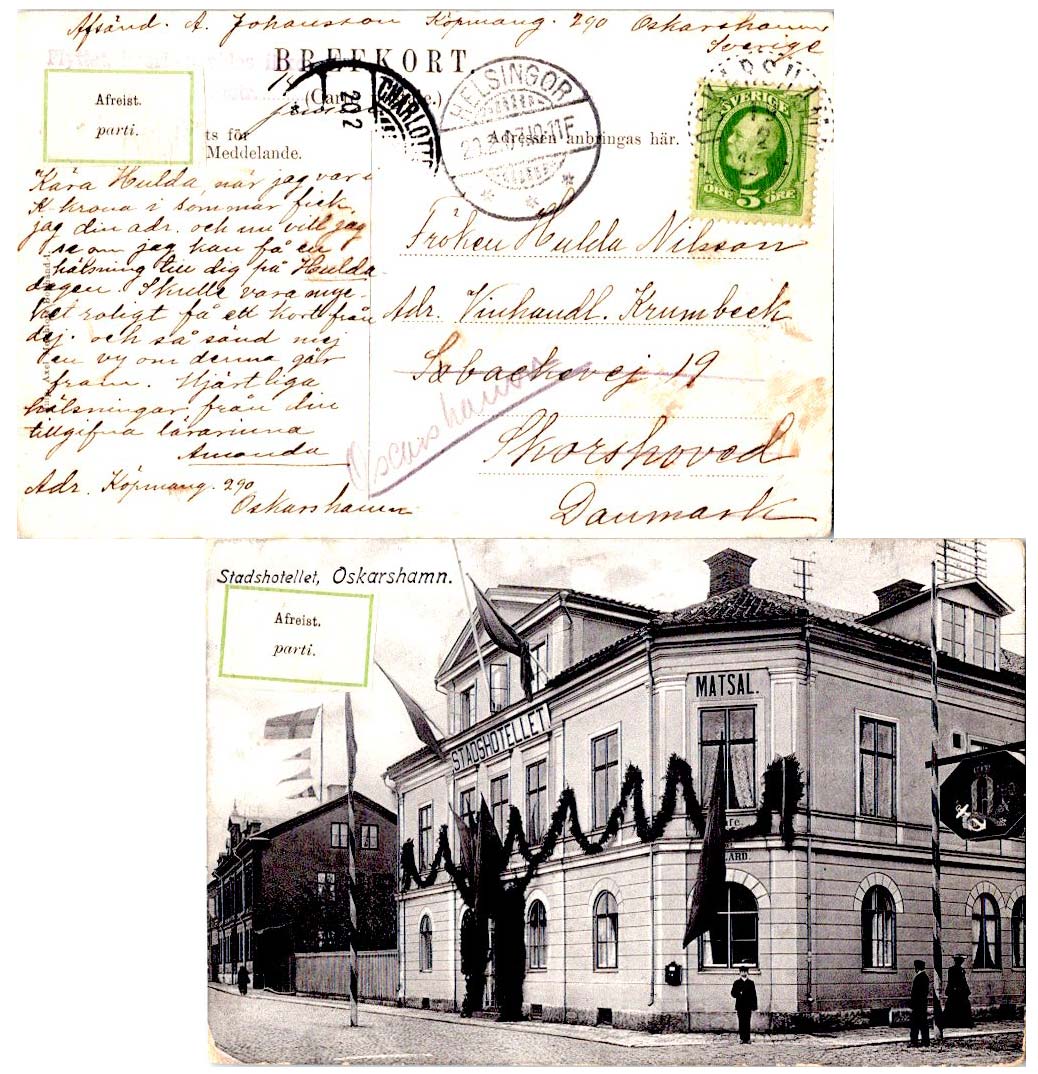 Afsänd. A. Johansson Köpmang. 290 Oskarshamn
Sverige
BREFKORT.
Afreist.
parti.
ts för
Meddelande.
Adressen anbringas här.
CHARLOTTE
20 2
HELSINGØR
SVERIGE
ÖRE 5 ÖRE
Kära Hulda, när jag var i
K krona i sommar fick
jag din adr. och nu vill jag
se om jag kan få en
hälsning till dig på Hulda
dagen. Skulle vara myc-
ket roligt få ett kort från
dej. och så sänd mej
en vy om denna går
fram. Hjärtliga
hälsningar från din
tillgifna lärarinna
Amanda
Adr. Köpmang. 290
Oskarshamn
Fröken Hulda Nilsson
Adr. Vinhandl. Krumbeck
Sobacksvej 19
Skorshoved
Danmark
Oscarshamn
Stadshotellet, Oskarshamn.
Afreist.
parti.
STADSHOTELLET.
MATSAL.